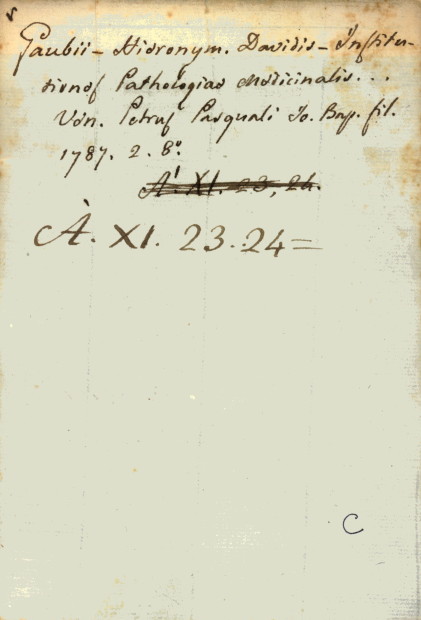 Gaubii - Hieronym. Davidis - Institu-
tiones Pathologiae Medicinalis...
Ven. Petrus Pasquali Jo. Bap. fil.
1787. 2. 8º.
A' XI. 23, 24.
À. XI. 23.24=
C